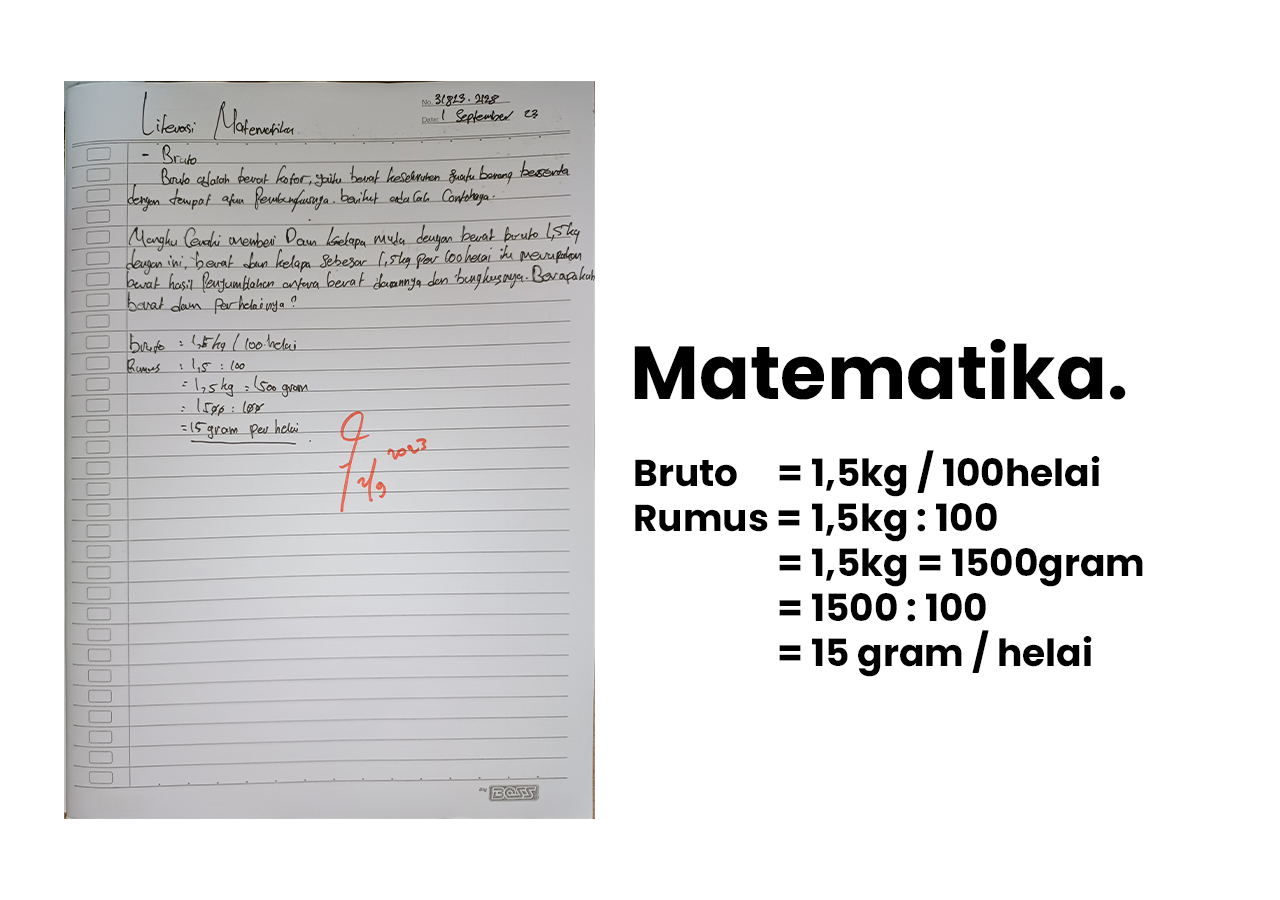 Literasi Matematika
No. 31823.2128
Date: 1 September 23
- Bruto
Bruto adalah berat kotor, yaitu berat keseluruhan suatu barang beserta
dengan tempat atau Pembungkusnya. berikut adalah Contohnya.
Mangku Cendki memberi Daun Kelapa muda dengan berat bruto 1,5kg
dengan ini, berat daun kelapa sebesar 1,5kg per 100helai itu merupakan
berat hasil Penjumblahan antara berat daunnya dan bungkusnya. Berapakah
berat daun perhelainya?
bruto = 1,5kg / 100.helai
Rumus : 1,5 : 100
= 1,5 kg = 1500 gram
= 1500 : 100
= 15 gram per helai
2/9 2023
By BOSS
Matematika.
Bruto = 1,5kg / 100helai
Rumus = 1,5kg : 100
= 1,5kg = 1500gram
= 1500 : 100
= 15 gram / helai